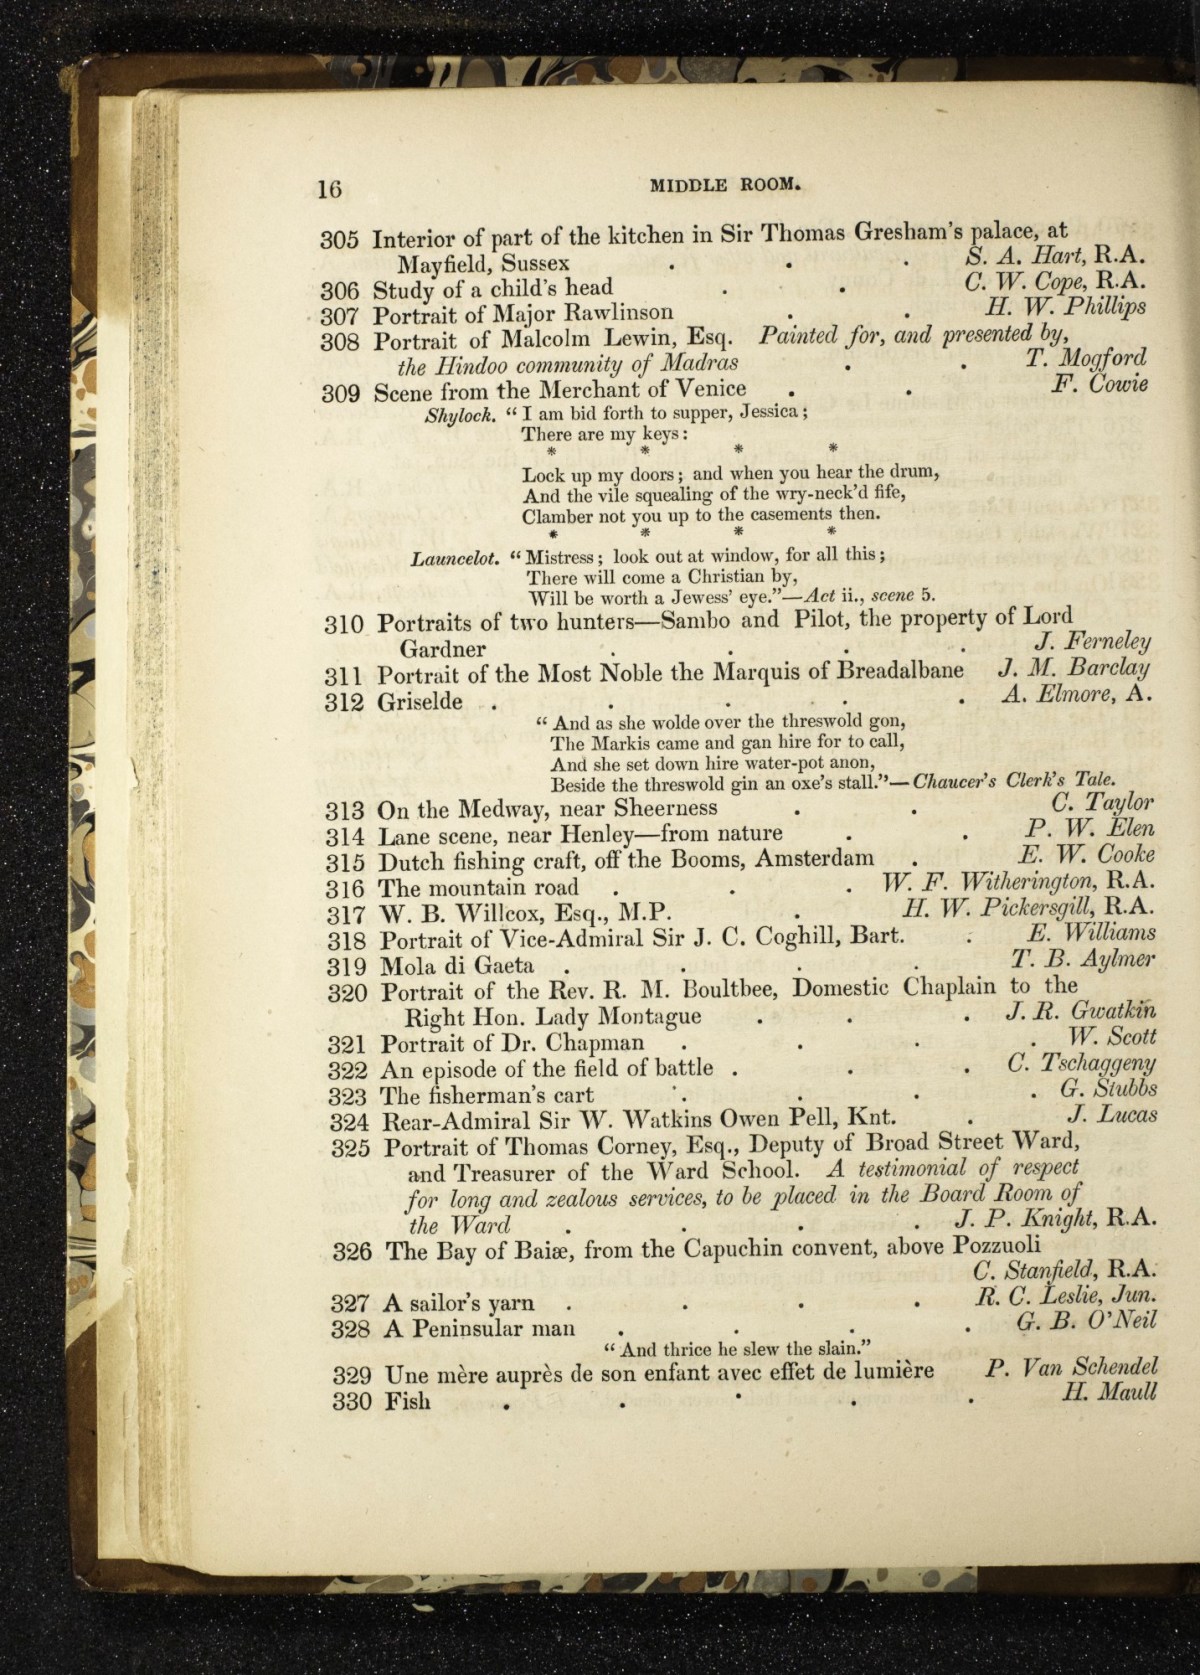 16 MIDDLE ROOM.
305 Interior of part of the kitchen in Sir Thomas Gresham's palace, at
Mayfield, Sussex . . . S. A. Hart, R.A.
306 Study of a child's head . . C. W. Cope, R.A.
307 Portrait of Major Rawlinson . . H. W. Phillips
308 Portrait of Malcolm Lewin, Esq. Painted for, and presented by,
the Hindoo community of Madras . . T. Mogford
309 Scene from the Merchant of Venice . . F. Cowie
Shylock. “I am bid forth to supper, Jessica;
There are my keys:
* * * *
Lock up my doors; and when you hear the drum,
And the vile squealing of the wry-neck'd fife,
Clamber not you up to the casements then.
* * * *
Launcelot. “Mistress; look out at window, for all this;
There will come a Christian by,
Will be worth a Jewess' eye.”—Act ii., scene 5.
310 Portraits of two hunters—Sambo and Pilot, the property of Lord
Gardner . . . . J. Ferneley
311 Portrait of the Most Noble the Marquis of Breadalbane J. M. Barclay
312 Griselde . . . . . A. Elmore, A.
“And as she wolde over the threswold gon,
The Markis came and gan hire for to call,
And she set down hire water-pot anon,
Beside the threswold gin an oxe's stall.”—Chaucer's Clerk's Tale.
313 On the Medway, near Sheerness . . C. Taylor
314 Lane scene, near Henley—from nature . . P. W. Elen
315 Dutch fishing craft, off the Booms, Amsterdam . E. W. Cooke
316 The mountain road . . . W. F. Witherington, R.A.
317 W. B. Willcox, Esq., M.P. . H. W. Pickersgill, R.A.
318 Portrait of Vice-Admiral Sir J. C. Coghill, Bart. . E. Williams
319 Mola di Gaeta . . . . T. B. Aylmer
320 Portrait of the Rev. R. M. Boultbee, Domestic Chaplain to the
Right Hon. Lady Montague . . . J. R. Gwatkin
321 Portrait of Dr. Chapman . . . . W. Scott
322 An episode of the field of battle . . . C. Tschaggeny
323 The fisherman's cart . . . . G. Stubbs
324 Rear-Admiral Sir W. Watkins Owen Pell, Knt. . J. Lucas
325 Portrait of Thomas Corney, Esq., Deputy of Broad Street Ward,
and Treasurer of the Ward School. A testimonial of respect
for long and zealous services, to be placed in the Board Room of
the Ward . . . . J. P. Knight, R.A.
326 The Bay of Baiæ, from the Capuchin convent, above Pozzuoli
C. Stanfield, R.A.
327 A sailor's yarn . . . . R. C. Leslie, Jun.
328 A Peninsular man . . . . G. B. O'Neil
“And thrice he slew the slain.”
329 Une mère auprès de son enfant avec effet de lumière P. Van Schendel
330 Fish . . . . . H. Maull